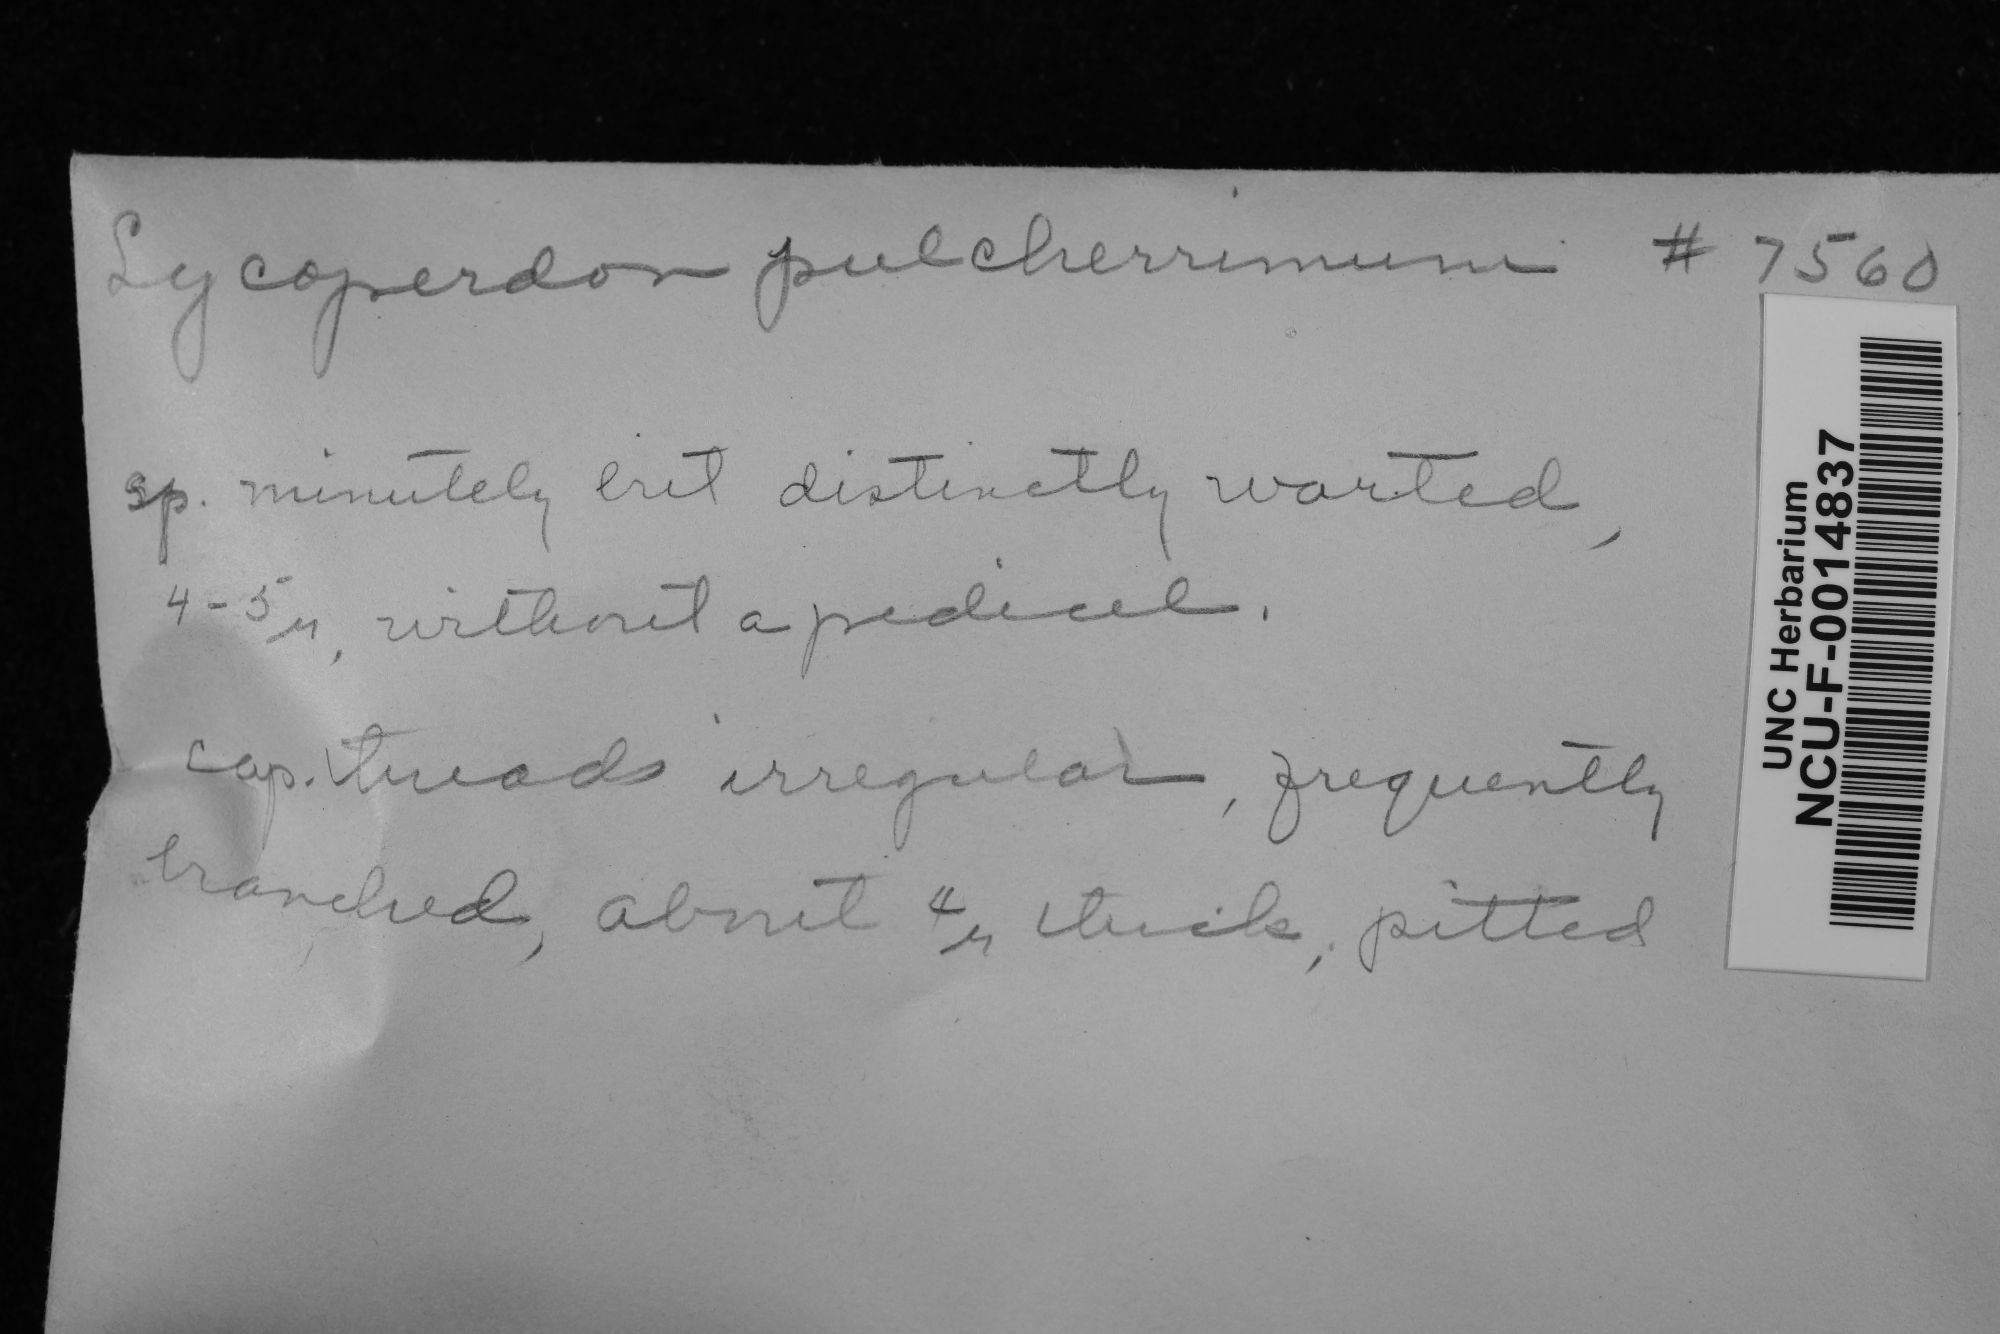 Lycoperdon pulcherrimum # 7560
sp. minutely but distinctly warted,
4-5μ, without a pedicel.
cap. threads irregular, frequently
branched, about 4μ thick, pitted
UNC Herbarium
NCU-F-0014837